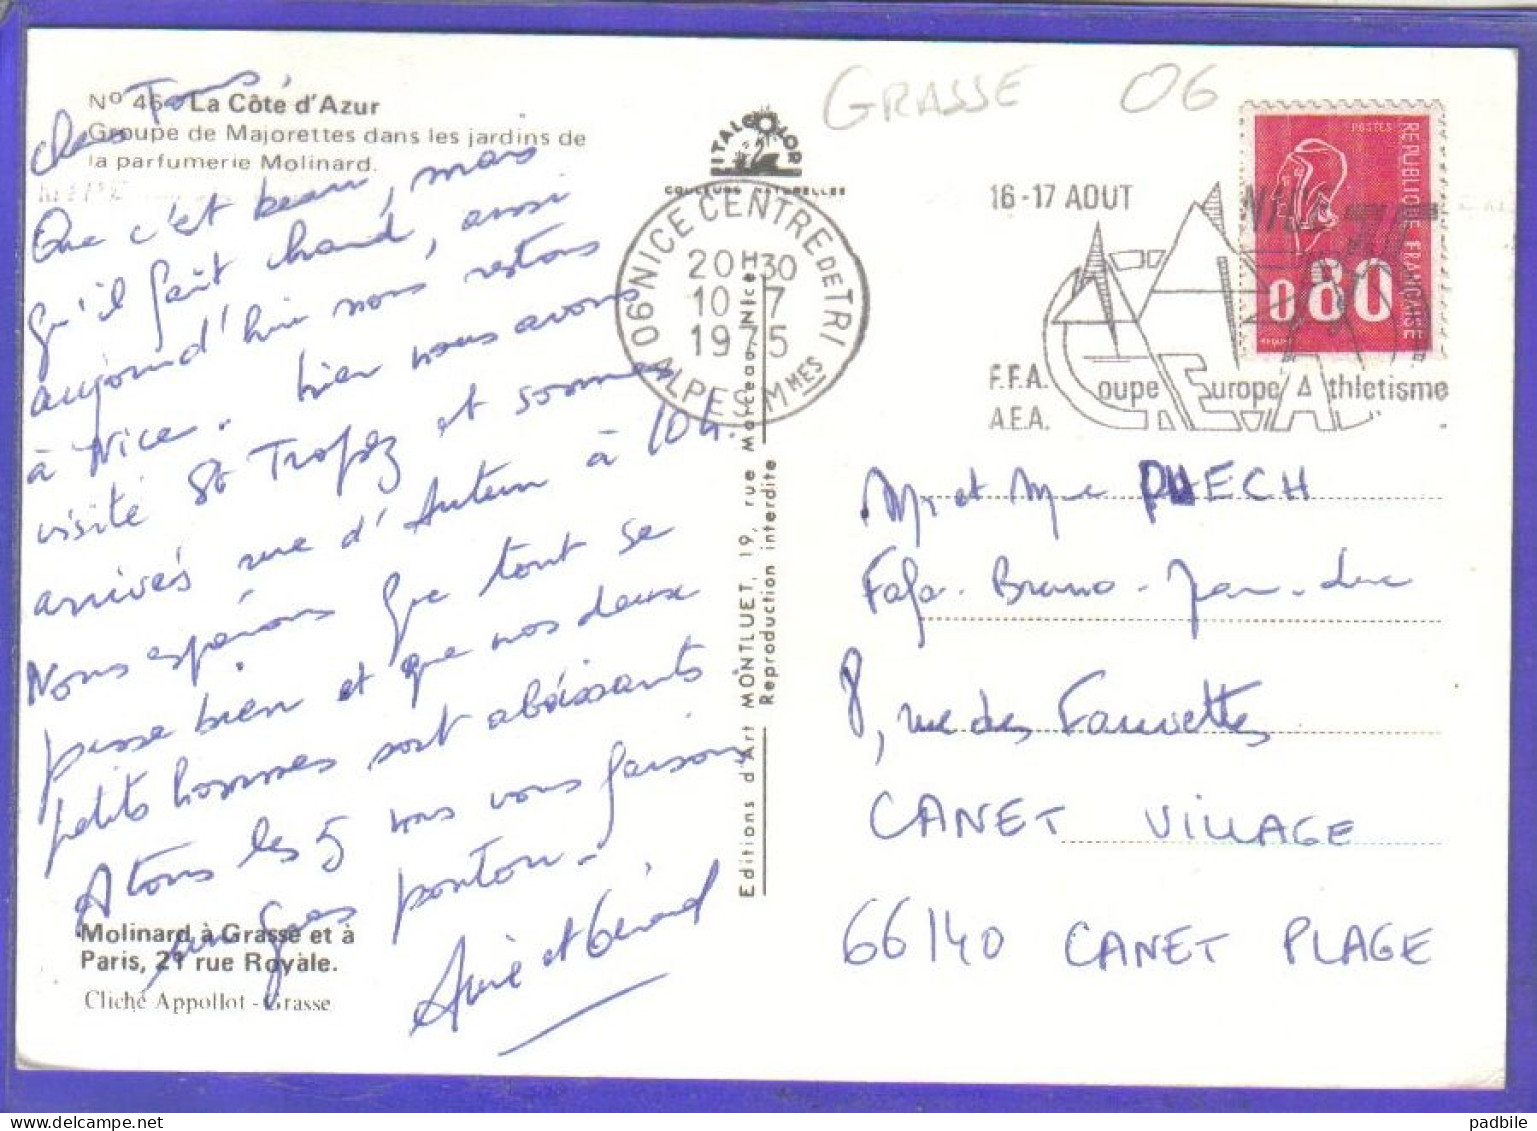 GRASSE 06
N° 46 - La Côte d'Azur
Groupe de Majorettes dans les jardins de
la parfumerie Molinard.
chers Tous,
Que c'est beau, mais
qu'il fait chaud, aussi
aujourd'hui nous restons
à Nice. hier nous avons
visité St Tropez et sommes
arrivés rue d'Auteun à 10h.
Nous espérons que tout se
passe bien et que nos deux
petits hommes sont abéissants
A tous les 5 nous vous faisons
un gros ponton.
Anie et Gérard
Molinard à Grasse et à
Paris, 21 rue Royale.
Cliché Appollot - Grasse
ITALCOLOR
COULEURS NATURELLES
Editions d'Art MONTLUET, 19, rue Marceau, Nice
Reproduction interdite
06 NICE CENTRE DE TRI
20H30
10 7
1975
ALPES Mmes
16-17 AOUT
NICE 75
F.F.A.
A.E.A.
Coupe Europe Athletisme
POSTES
REPUBLIQUE FRANCAISE
0,80
Mr et Mme PUECH
Fafa - Bruno - Jean-Luc
8, rue des Fauvettes
CANET VILLAGE
66140 CANET PLAGE
padbile